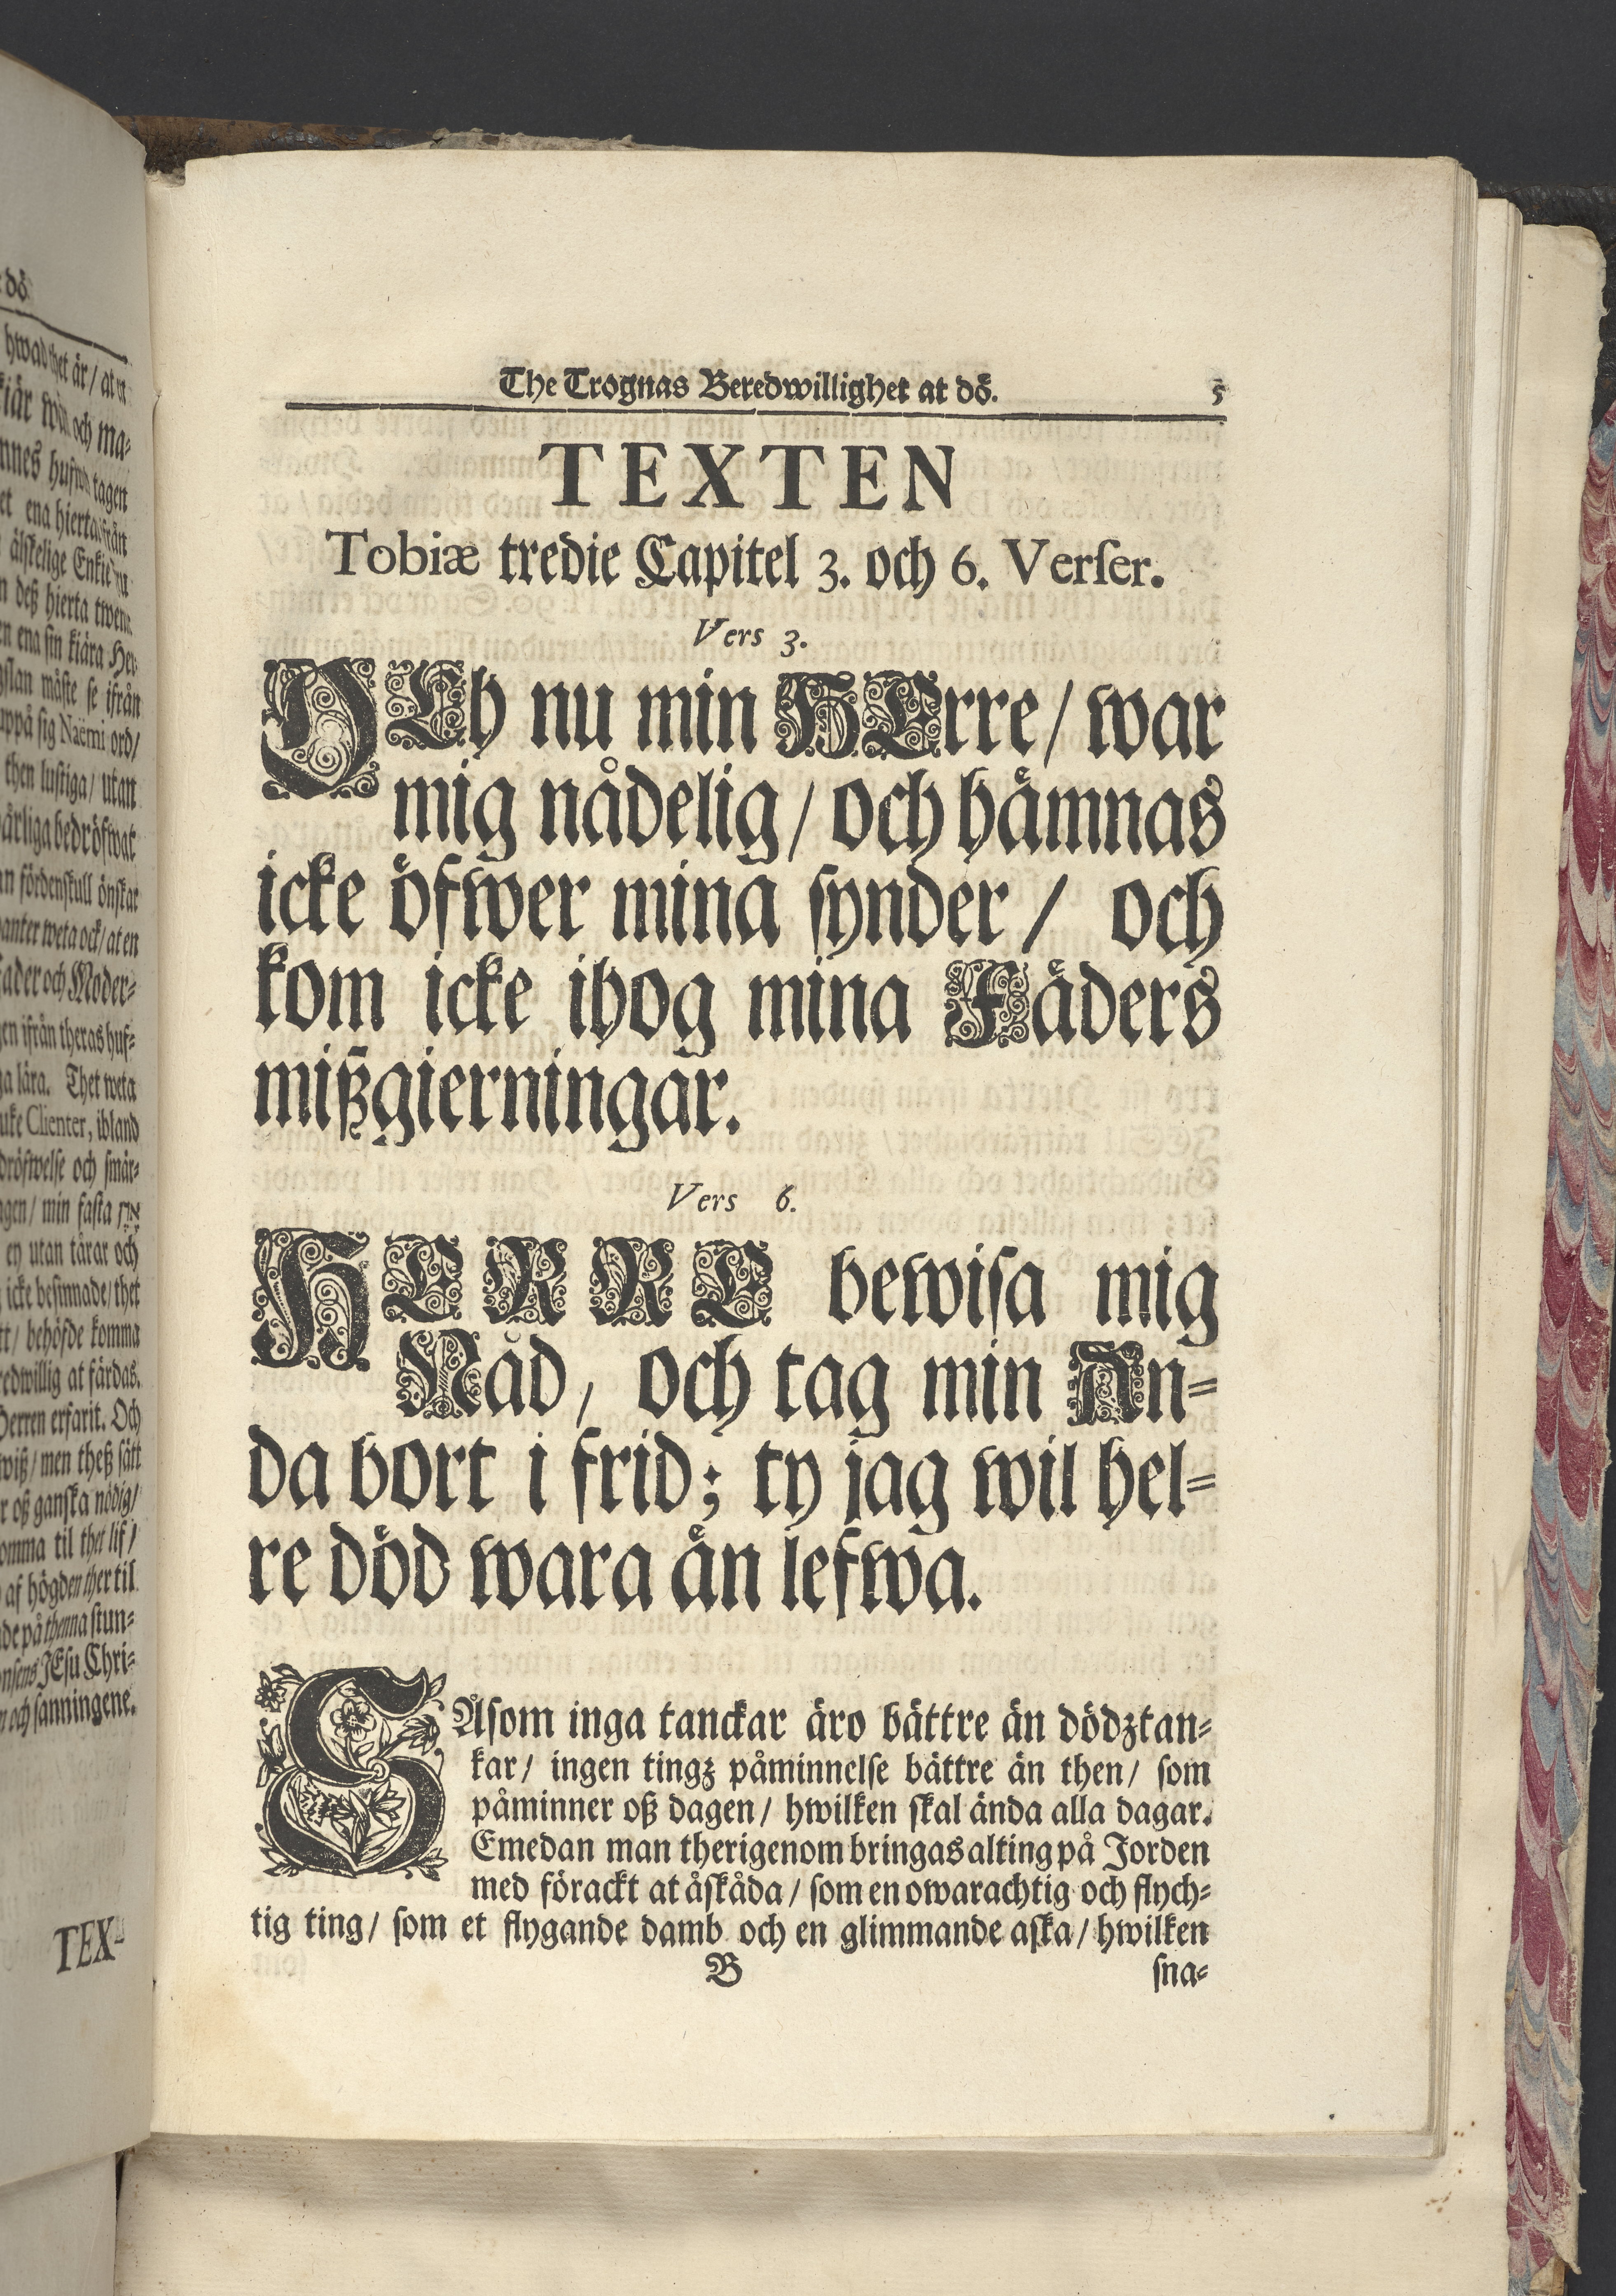 dö
hwad thet är / at
kiär wän och ma-
nnes hufwd tagen
et ena hierta ifrån
älskelige Enkie
n deß hierta twenne
en ena sin kiära Her-
måste se ifrån
uppå sig Naëmi ord /
then lustiga / utan
bedröfwat
fördenskull önskar
weta ock / at en
ader och Moder-
en ifrån theras huf-
ga lära. Thet weta
Clienter, ibland
dröfwelse och smär-
gen / min fasta
ey utan tårar och
icke besinnade / thet
tt / behöfde komma
redwillig at färdas.
Herren erfarit. Och
wiß / men theß sätt
r oß ganska nödig /
omma til thet lif /
af högden ther til
de på thenna stun-
JEsu Chri-
och sanningene.
TEX-
The Trognas Beredwillighet at dö. 5
TEXTEN
Tobiæ tredie Capitel 3. och 6. Verser.
Vers 3.
OCh nu min HErre / war
mig nådelig / och hämnas
icke öfwer mina synder / och
kom icke ihog mina Fäders
mißgierningar.
Vers 6.
HERRE bewisa mig
Nåd / och tag min An-
da bort i frid; ty jag wil hel-
re död wara än lefwa.
SÅsom inga tanckar äro bättre än dödztan-
kar / ingen tingz påminnelse bättre än then / som
påminner oß dagen / hwilken skal ända alla dagar.
Emedan man therigenom bringas alting på Jorden
med förackt at åskåda / som en owarachtig och flych-
tig ting / som et flygande damb och en glimmande aska / hwilken
B sna-